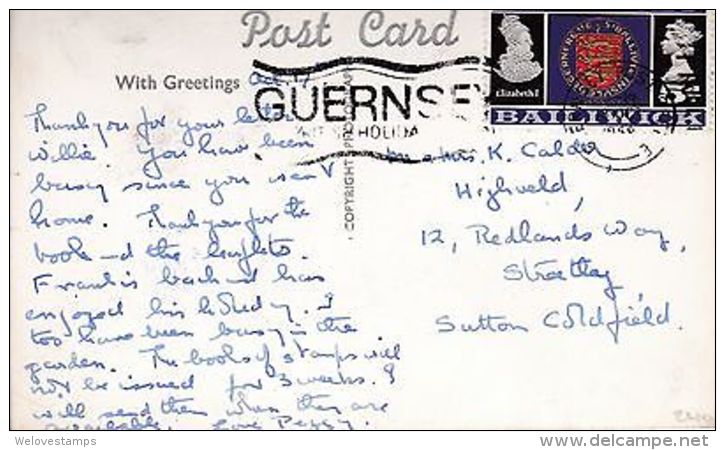 Post Card
With Greetings Oct. 17
GUERNSEY
HOLIDA
Elizabeth I
5
BAILIWICK
COPYRIGHT
Thank you for your letter
Willie. You have been
busy since you went
home. Thank you for the
book and the leaflets.
Frank is back and has
enjoyed his holiday. I
too have been busy in the
garden. The books of stamps will
not be issued for 3 weeks. I
will send them when they are
available. Love Peggy.
Mrs. K. Calder
Highveld,
12, Redlands Way,
Streetly
Sutton Coldfield.
Welovestamps
www.delcampe.net